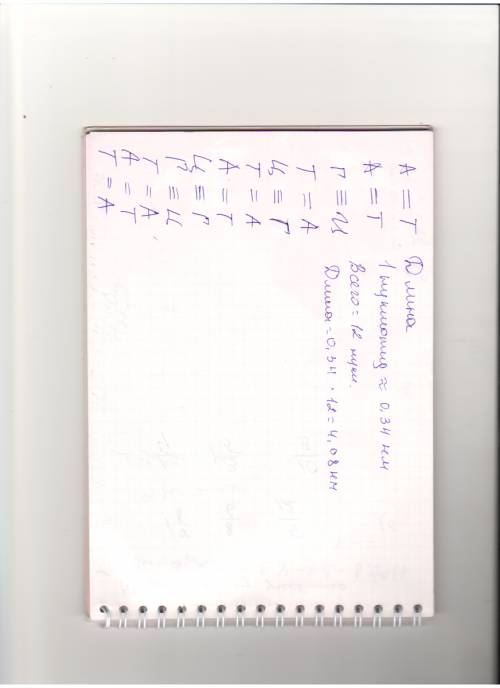 А = Т Длина
А = Т 1 нуклеотид ≈ 0,34 нм
Г ≡ Ц Всего = 12 нукл.
Т = А Длина = 0,34 · 12 = 4,08 нм
Ц ≡ Г
Т = А
А = Т
Ц ≡ Г
Г ≡ Ц
Т = А
А = Т
Т = А